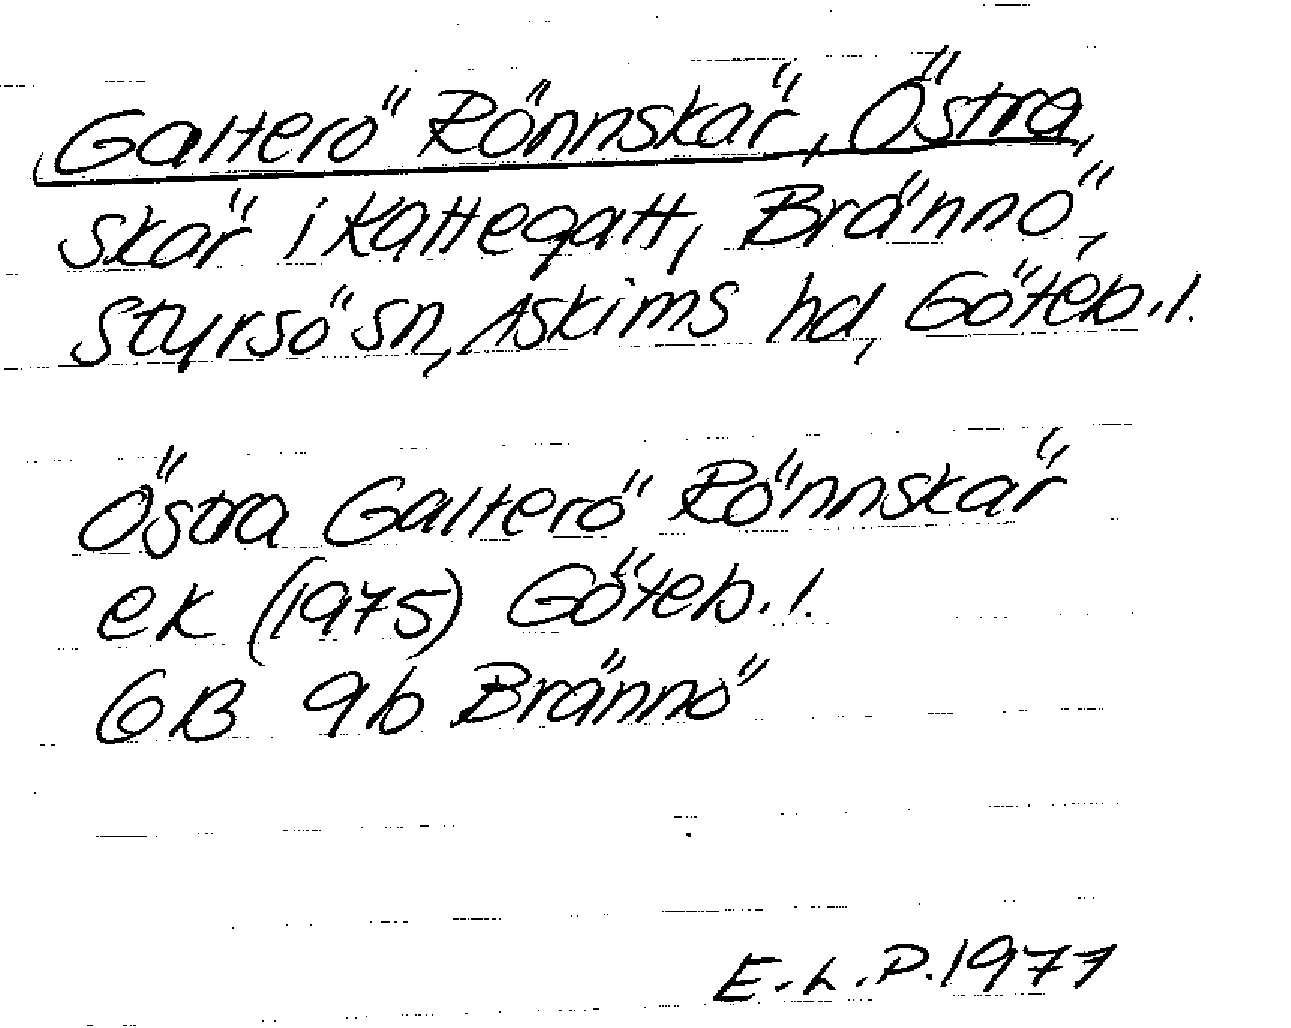 Galterö Rönnskär, Östra,
skär i Kattegatt, Brännö,
Styrsö sn, Askims hd, Göteb. l.
Östra Galterö Rönnskär
ek (1975) Göteb. l.
GB 9b Brännö
E.L.P. 1977